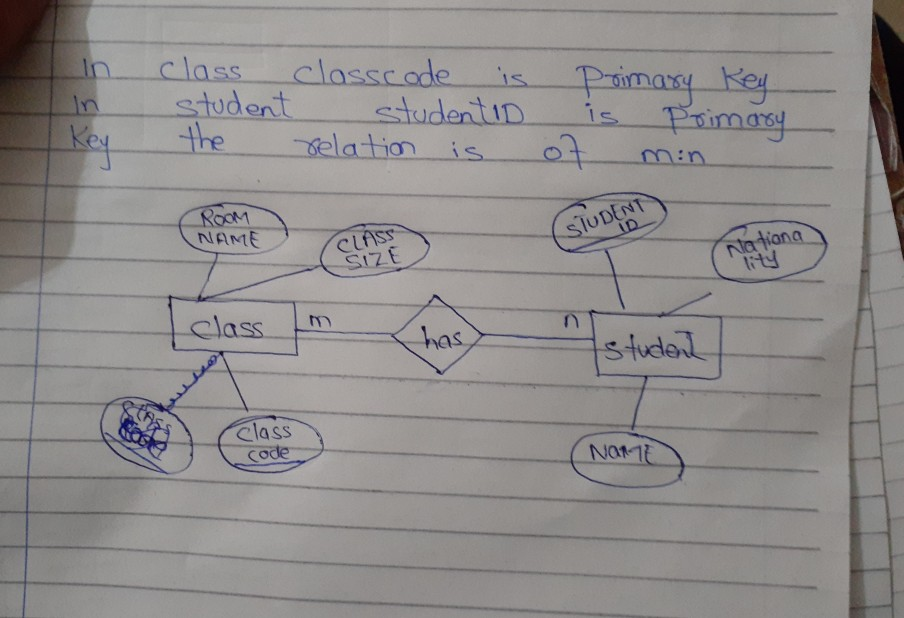 In class classcode is Primary Key
In student studentID is Primary
Key the relation is of m:n
ROOM
NAME
CLASS
SIZE
STUDENT
ID
Nationa
lity
class
m
has
n
student
class
code
NAME